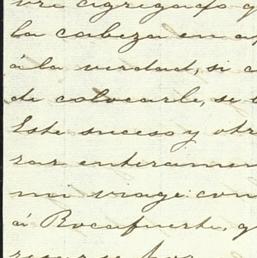 agregado
la cabeza en a
á la verdad, si
de colocarle, se
Este suceso y otr
rar enteramen
mi viage con
á Rocafuerte, q